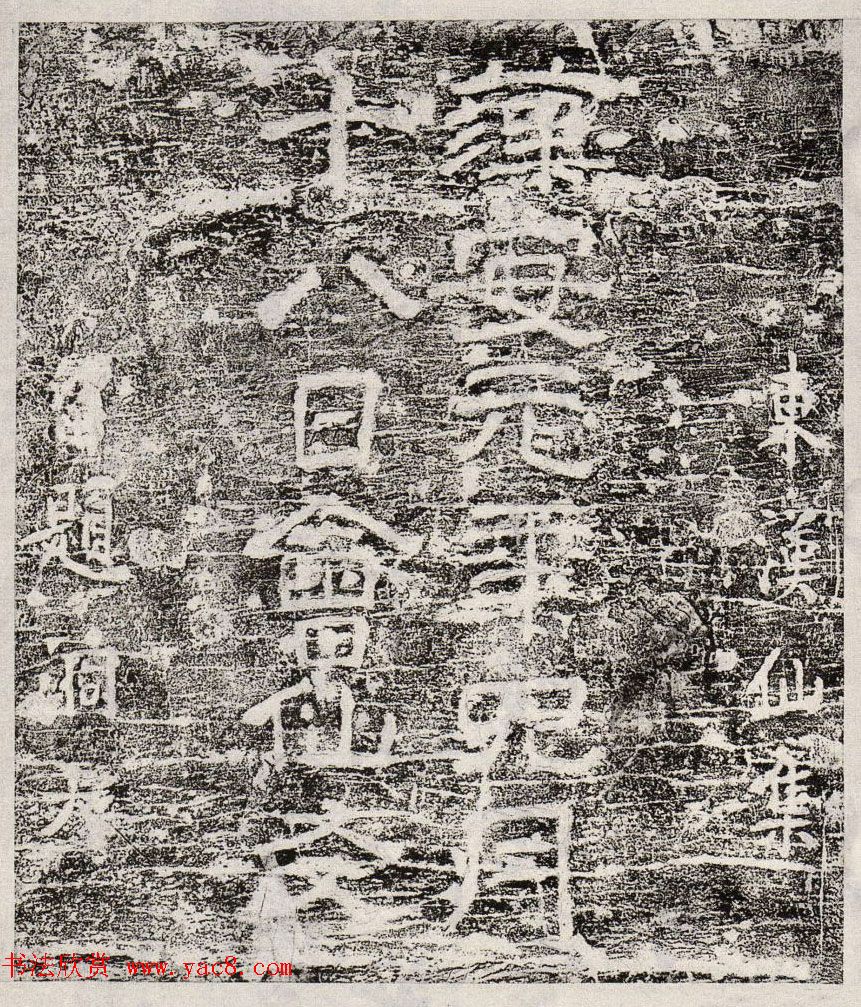 東漢仙集
漢安元年四月
十八日會仙友
留題洞天
书法欣赏 www.yac8.com